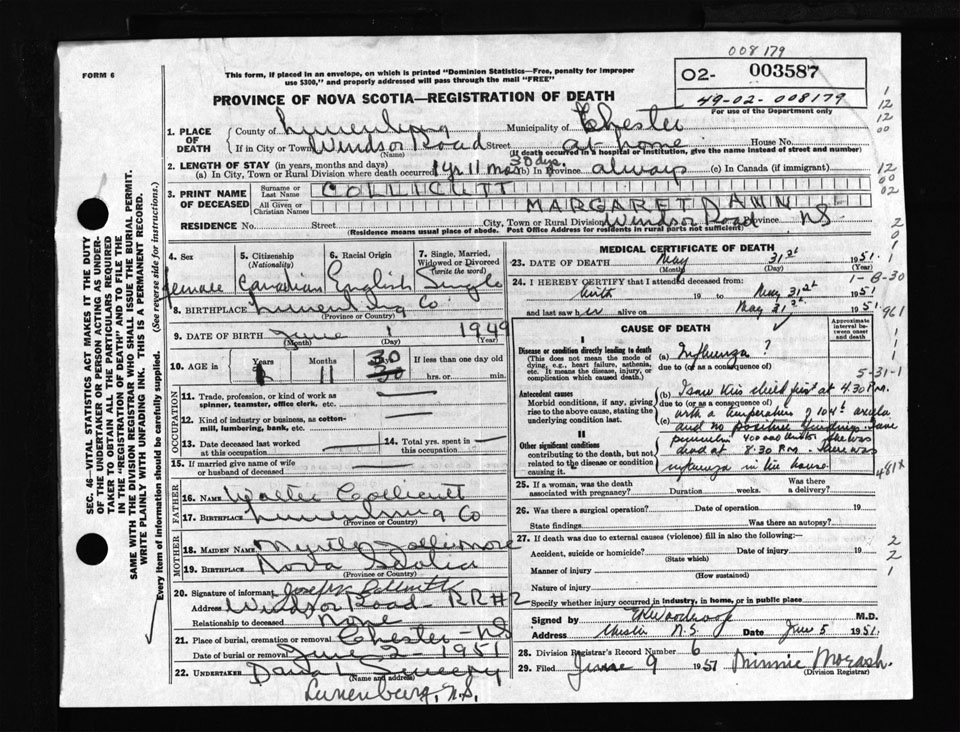 008 179
FORM 6
This form, if placed in an envelope, on which is printed "Dominion Statistics—Free, penalty for improper
use $300," and properly addressed will pass through the mail "FREE"
O2- 003587
49-02-008179
For use of the Department only
PROVINCE OF NOVA SCOTIA—REGISTRATION OF DEATH
1. PLACE OF DEATH
County of Lunenburg Municipality of Chester
If in City or Town Windsor Road Street at home House No.
(Name) (If death occurred in a hospital or institution, give the name instead of street and number)
2. LENGTH OF STAY (in years, months and days)
(a) In City, Town or Rural Division where death occurred 1 yr 11 mos 30 dys. (b) In Province always (c) In Canada (if immigrant)
3. PRINT NAME OF DECEASED
Surname or Last Name COLLICUTT
All Given or Christian Names MARGARET DAWN
RESIDENCE No. Street City, Town or Rural Division Windsor Road Province NS
(Residence means usual place of abode. Post Office Address for residents in rural parts not sufficient)
4. Sex female
5. Citizenship (Nationality) Canadian
6. Racial Origin English
7. Single, Married, Widowed or Divorced (write the word) Single
8. BIRTHPLACE Lunenburg Co
(Province or Country)
9. DATE OF BIRTH June 1 1949
(Month) (Day) (Year)
10. AGE in Years 1 Months 11 Days 30 30 If less than one day old
hrs. or min.
OCCUPATION
11. Trade, profession, or kind of work as spinner, teamster, office clerk, etc. —
12. Kind of industry or business, as cotton-mill, lumbering, bank, etc. —
13. Date deceased last worked at this occupation —
14. Total yrs. spent in this occupation —
15. If married give name of wife or husband of deceased —
FATHER
16. NAME Collicutt
17. BIRTHPLACE Lunenburg Co
(Province or Country)
MOTHER
18. MAIDEN NAME Myrtle
19. BIRTHPLACE Nova Scotia
(Province or Country)
20. Signature of informant Joseph Collicutt
Address Windsor Road RR#2
Relationship to deceased None
21. Place of burial, cremation or removal Chester - NS
Date of burial or removal June 2 - 1951
22. UNDERTAKER
(Name and address)
Lunenburg, N.S.
MEDICAL CERTIFICATE OF DEATH
23. DATE OF DEATH May 31st 1951
(Month) (Day) (Year)
24. I HEREBY CERTIFY that I attended deceased from:
birth 19 to May 31st 1951
and last saw her alive on May 31st. 1951.
CAUSE OF DEATH
Approximate interval between onset and death
I
Disease or condition directly leading to death
(This does not mean the mode of dying, e.g., heart failure, asthenia, etc. It means the disease, injury, or complication which caused death.)
(a) Influenza ?
due to (or as a consequence of)
Antecedent causes
Morbid conditions, if any, giving rise to the above cause, stating the underlying condition last.
(b) I saw this child first at 4.30 P.m.
due to (or as a consequence of)
with a temperature of 104° axilla
(c) and no positive findings. Gave
II
Other significant conditions
contributing to the death, but not related to the disease or condition causing it.
penicillin 400000 units. She was
dead at 8.30 P.m. There was
influenza in the house.
25. If a woman, was the death associated with pregnancy? Duration weeks. Was there a delivery?
26. Was there a surgical operation? Date of operation 19
State findings Was there an autopsy?
27. If death was due to external causes (violence) fill in also the following:—
Accident, suicide or homicide? Date of injury 19
(State which)
Manner of injury
(How sustained)
Nature of injury
Specify whether injury occurred in industry, in home, or in public place
Signed by M.D.
Address Chester N.S. Date June 5 1951.
28. Division Registrar's Record Number 6
29. Filed June 9 1951 Minnie Morash.
(Division Registrar)
SEC. 46—VITAL STATISTICS ACT MAKES IT THE DUTY
OF THE UNDERTAKER OR PERSON ACTING AS UNDER-
TAKER TO OBTAIN ALL THE PARTICULARS REQUIRED
IN THE "REGISTRATION OF DEATH" AND TO FILE THE
SAME WITH THE DIVISION REGISTRAR WHO SHALL ISSUE THE BURIAL PERMIT.
WRITE PLAINLY WITH UNFADING INK. THIS IS A PERMANENT RECORD.
Every item of information should be carefully supplied. (See reverse side for instructions.)
1
12
12
00
12
00
02
2
0
1
1-8-30
961
1
1
1
5-31-1
481x
2
2
1